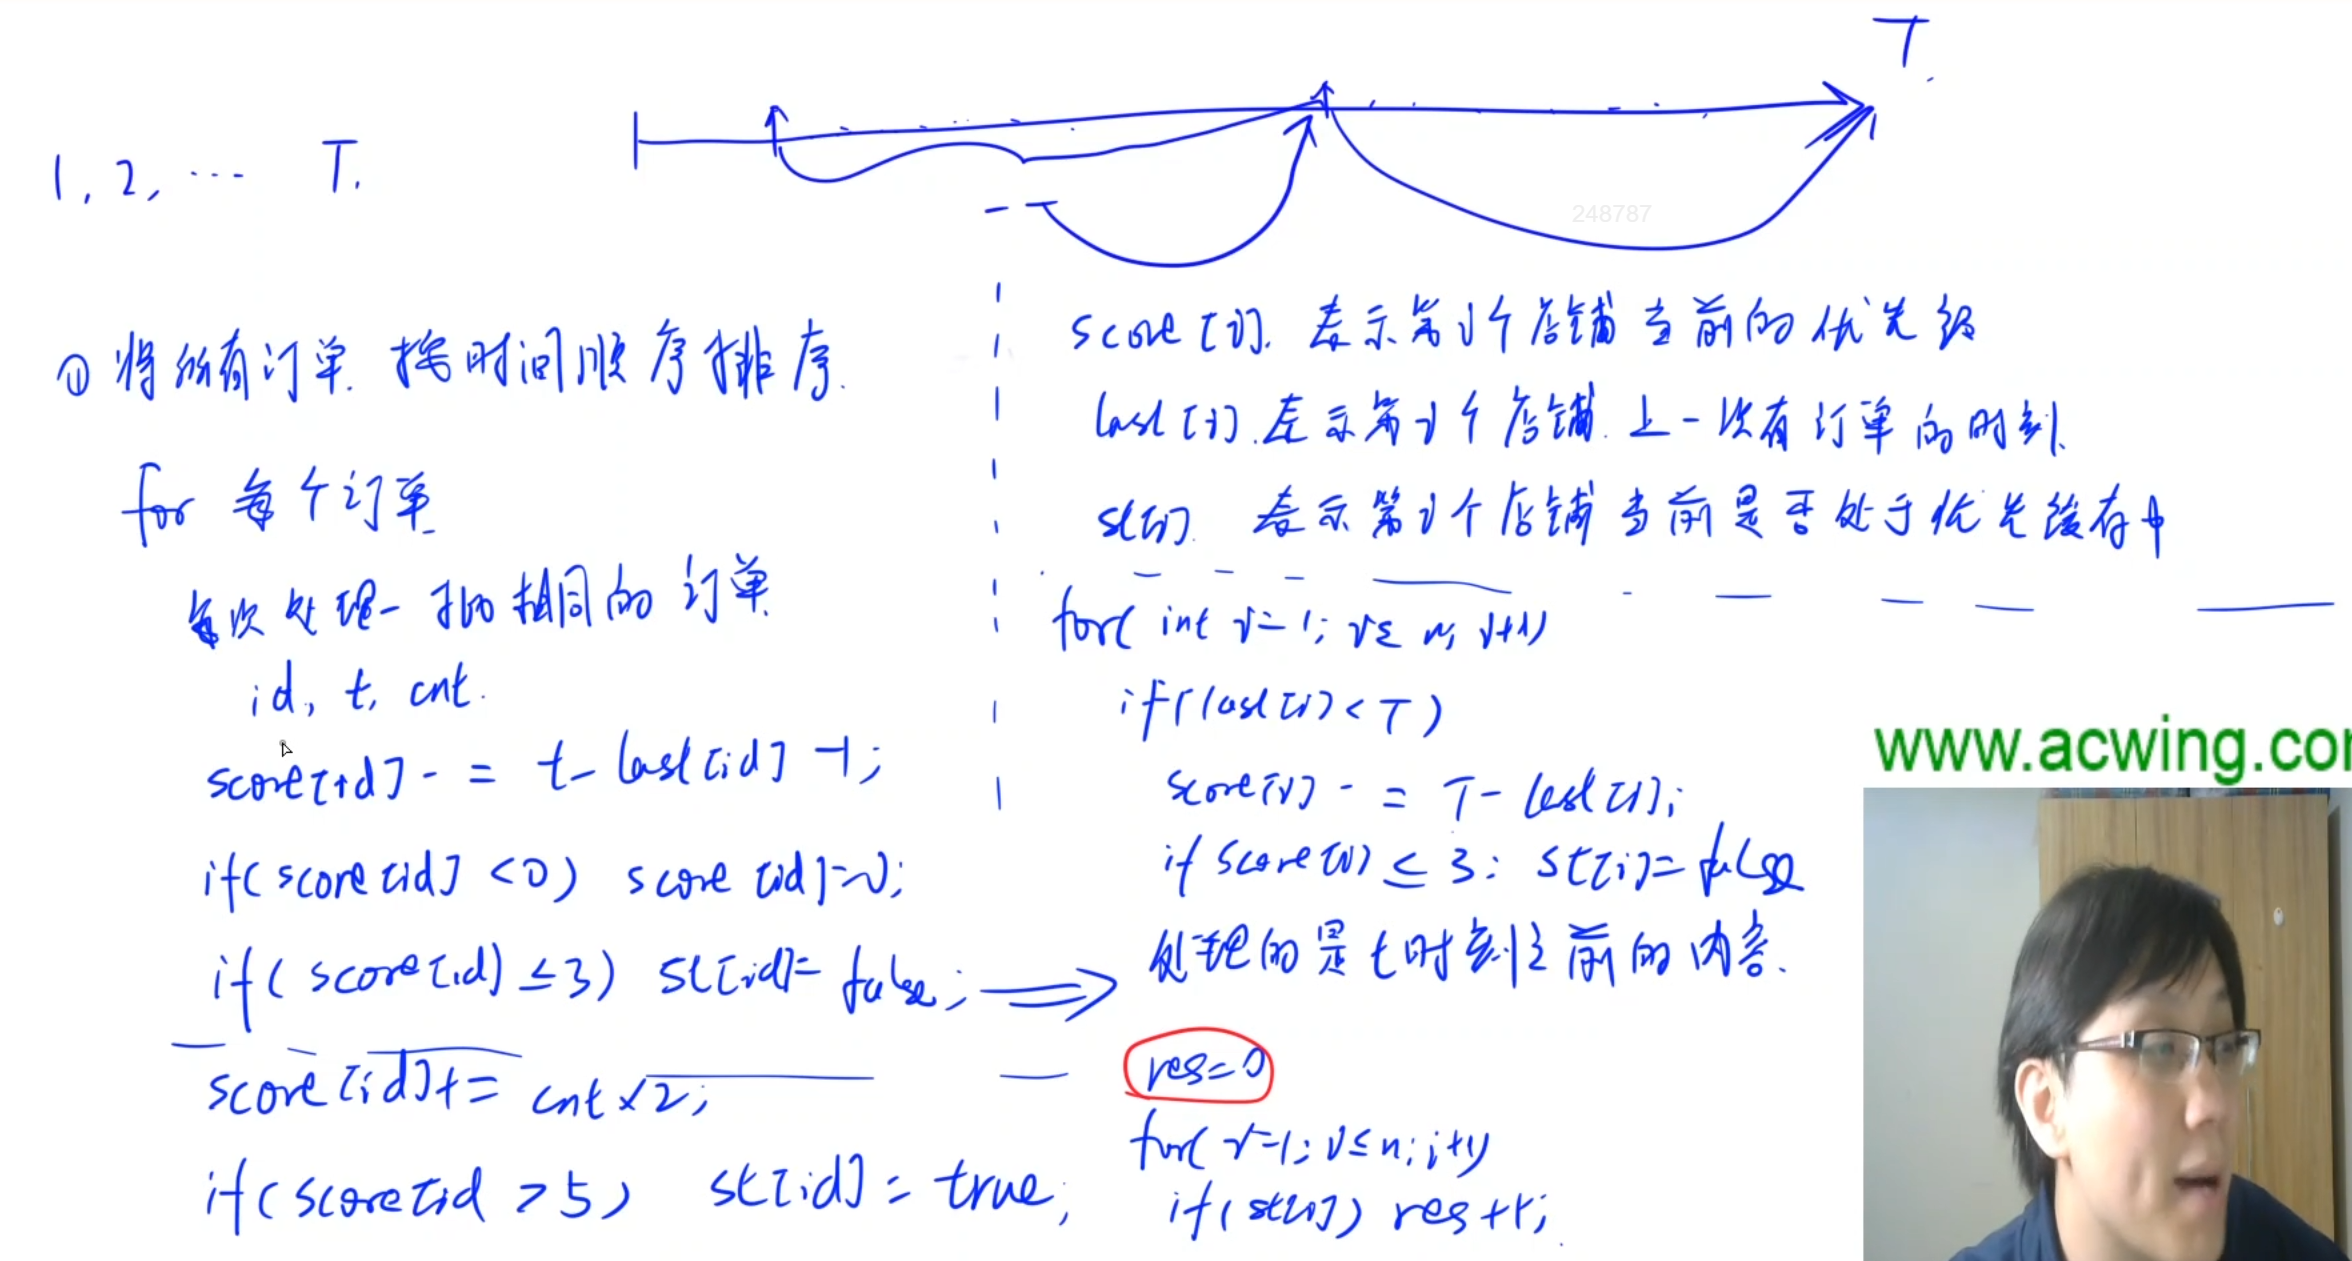 T.
1, 2, ... T.
248787
① 将所有订单 按时间顺序排序.
for 每个订单
每次处理一批相同的订单
id, t, cnt.
score[id] -= t - last[id] - 1;
if(score[id] < 0) score[id]=0;
if(score[id] ≤ 3) st[id]= false;
score[id] += cnt × 2;
if(score[id > 5) st[id] = true;
score[i]. 表示第i个店铺当前的优先级
last[i]. 表示第i个店铺 上一次有订单的时刻.
st[i]. 表示第i个店铺当前是否处于优先缓存中
for( int i=1; i≤ n; i++)
if(last[i] < T)
score[i] -= T - last[i];
if score[i] ≤ 3: st[i]= false
处理的是t时刻之前的内容.
res=0
for( i=1; i≤n; i++)
if(st[i]) res++;
www.acwing.co